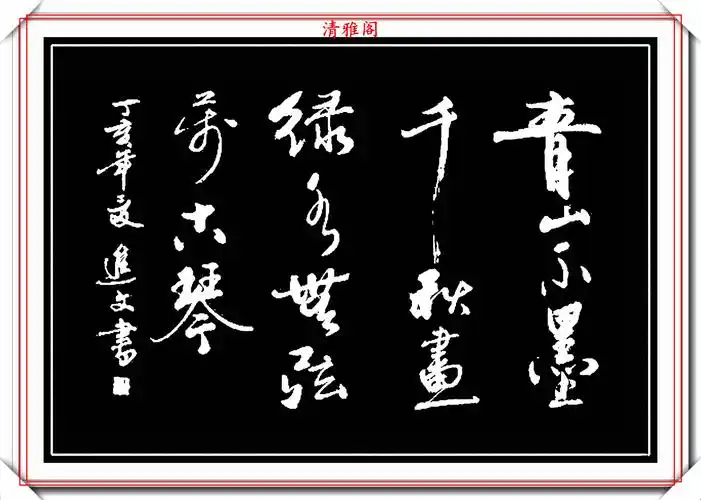 清雅阁
青山不墨
千秋畫
绿水無弦
萬古琴
丁亥年夏進文書